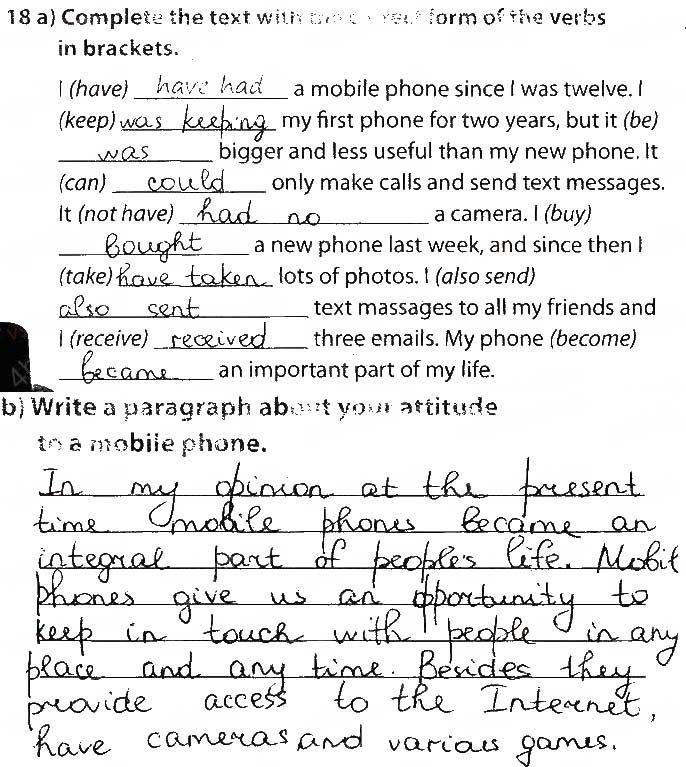 18 a) Complete the text with the correct form of the verbs
in brackets.
I (have) have had a mobile phone since I was twelve. I
(keep) was keeping my first phone for two years, but it (be)
was bigger and less useful than my new phone. It
(can) could only make calls and send text messages.
It (not have) had no a camera. I (buy)
Bought a new phone last week, and since then I
(take) have taken lots of photos. I (also send)
also sent text massages to all my friends and
I (receive) received three emails. My phone (become)
became an important part of my life.
b) Write a paragraph about your attitude
to a mobile phone.
In my opinion at the present
time mobile phones became an
integral part of people's life. Mobil
phones give us an opportunity to
keep in touch with people in any
place and any time. Besides they
provide access to the Internet,
have cameras and various games.